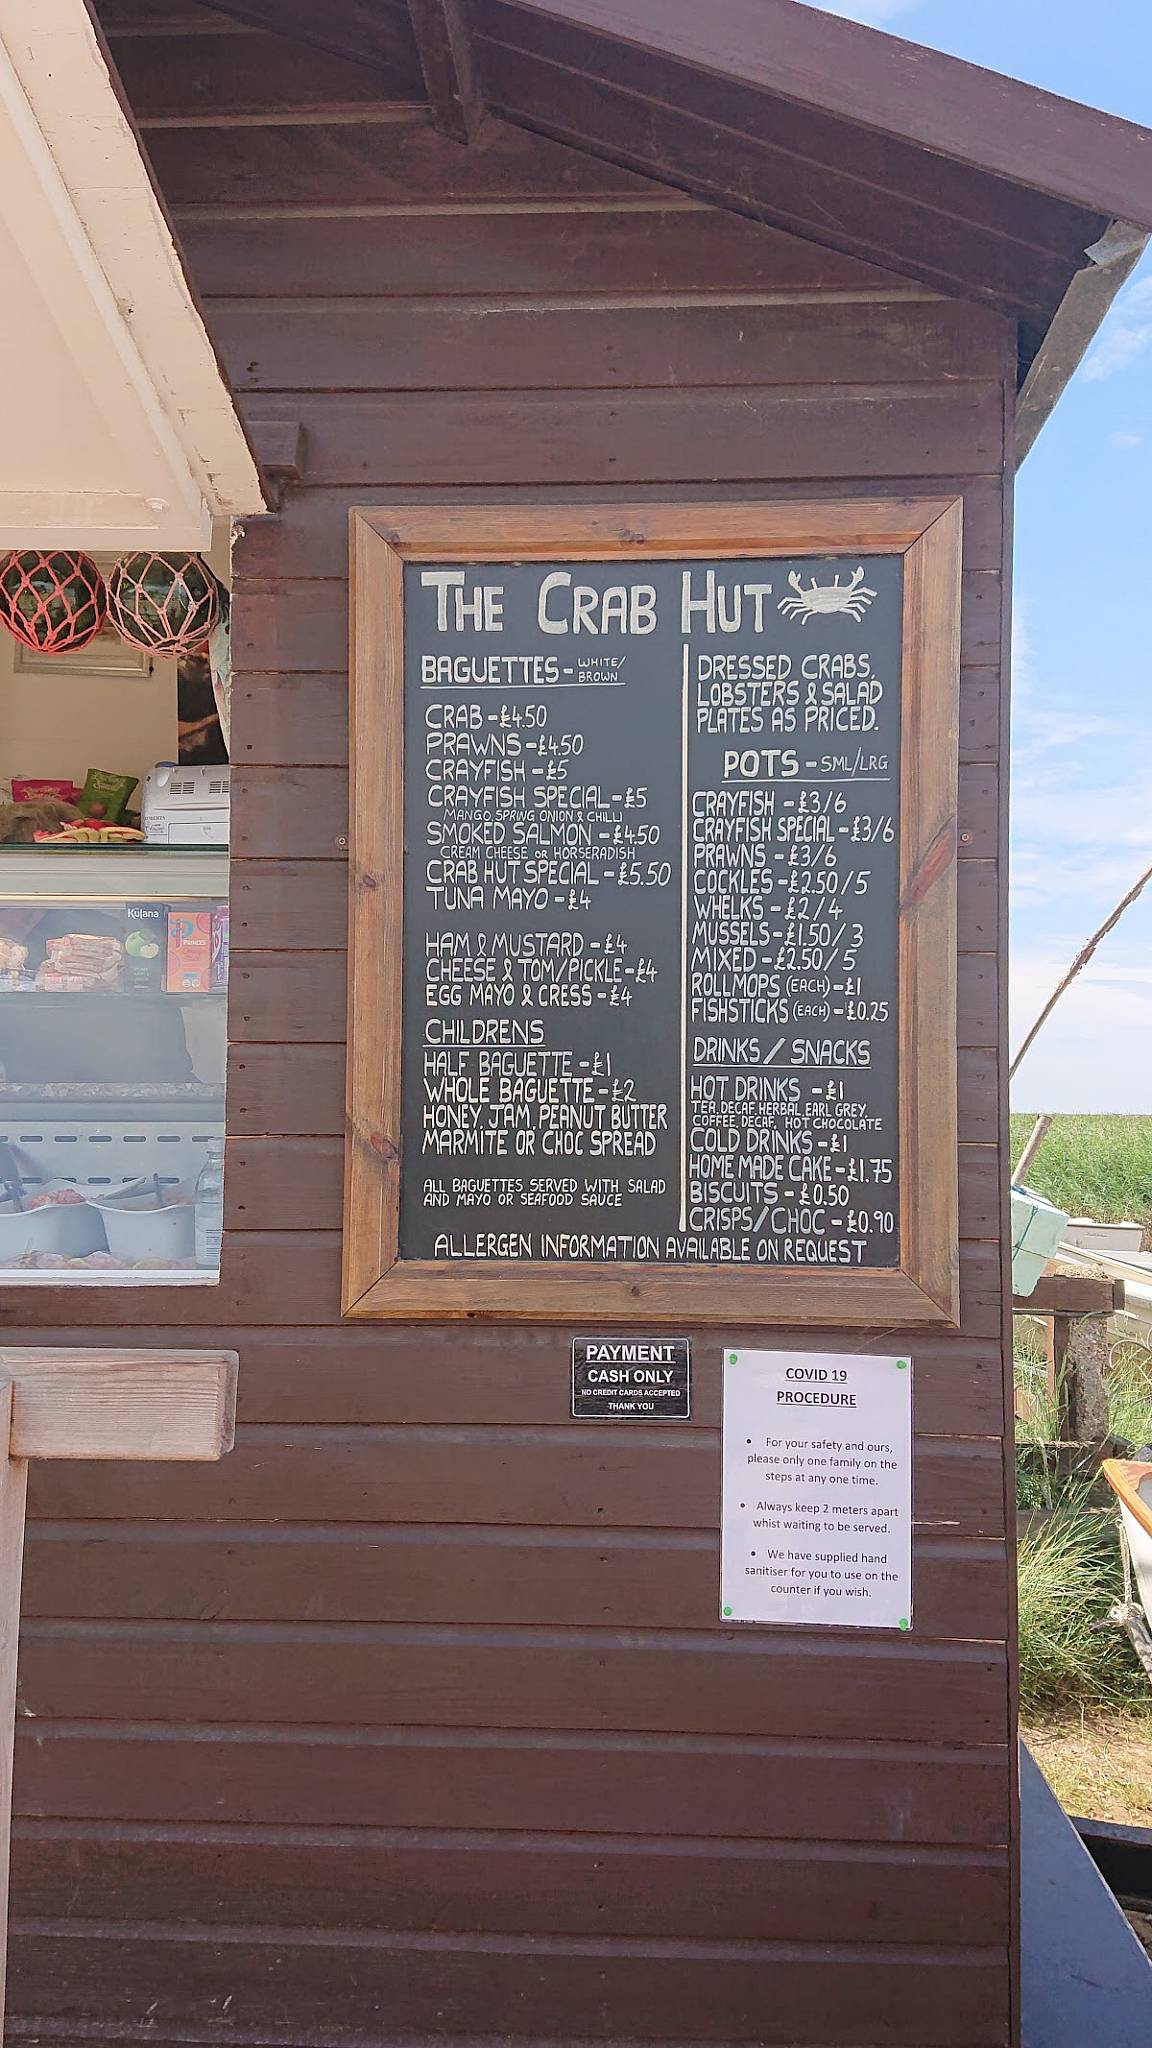 THE CRAB HUT
BAGUETTES - WHITE/
BROWN
CRAB - £4.50
PRAWNS - £4.50
CRAYFISH - £5
CRAYFISH SPECIAL - £5
MANGO, SPRING ONION & CHILLI
SMOKED SALMON - £4.50
CREAM CHEESE OR HORSERADISH
CRAB HUT SPECIAL - £5.50
TUNA MAYO - £4
HAM & MUSTARD - £4
CHEESE & TOM/PICKLE - £4
EGG MAYO & CRESS - £4
CHILDRENS
HALF BAGUETTE - £1
WHOLE BAGUETTE - £2
HONEY, JAM, PEANUT BUTTER
MARMITE OR CHOC SPREAD
ALL BAGUETTES SERVED WITH SALAD
AND MAYO OR SEAFOOD SAUCE
DRESSED CRABS,
LOBSTERS & SALAD
PLATES AS PRICED.
POTS - SML/LRG
CRAYFISH - £3/6
CRAYFISH SPECIAL - £3/6
PRAWNS - £3/6
COCKLES - £2.50/5
WHELKS - £2/4
MUSSELS - £1.50/3
MIXED - £2.50/5
ROLLMOPS (EACH) - £1
FISHSTICKS (EACH) - £0.25
DRINKS/SNACKS
HOT DRINKS - £1
TEA, DECAF, HERBAL, EARL GREY,
COFFEE, DECAF, HOT CHOCOLATE
COLD DRINKS - £1
HOME MADE CAKE - £1.75
BISCUITS - £0.50
CRISPS/CHOC - £0.90
ALLERGEN INFORMATION AVAILABLE ON REQUEST
Kulana
PRINCES
PAYMENT
CASH ONLY
NO CREDIT CARDS ACCEPTED
THANK YOU
COVID 19
PROCEDURE
• For your safety and ours,
please only one family on the
steps at any one time.
• Always keep 2 meters apart
whist waiting to be served.
• We have supplied hand
sanitiser for you to use on the
counter if you wish.